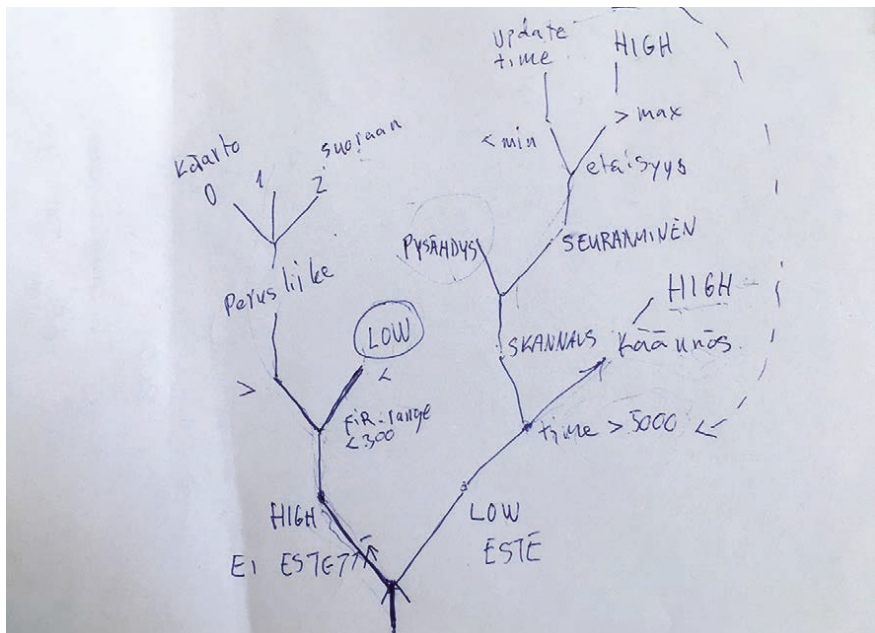 update
time
HIGH
< min
> max
etäisyys
Käärto
0
1
2
suoraan
PYSÄHDYS
SEURANMINEN
Perusliike
HIGH
LOW
SKANNAUS
Käännös
>
<
FIR-range
< 300
time > 5000
HIGH
EI ESTETTÄ
LOW
ESTE